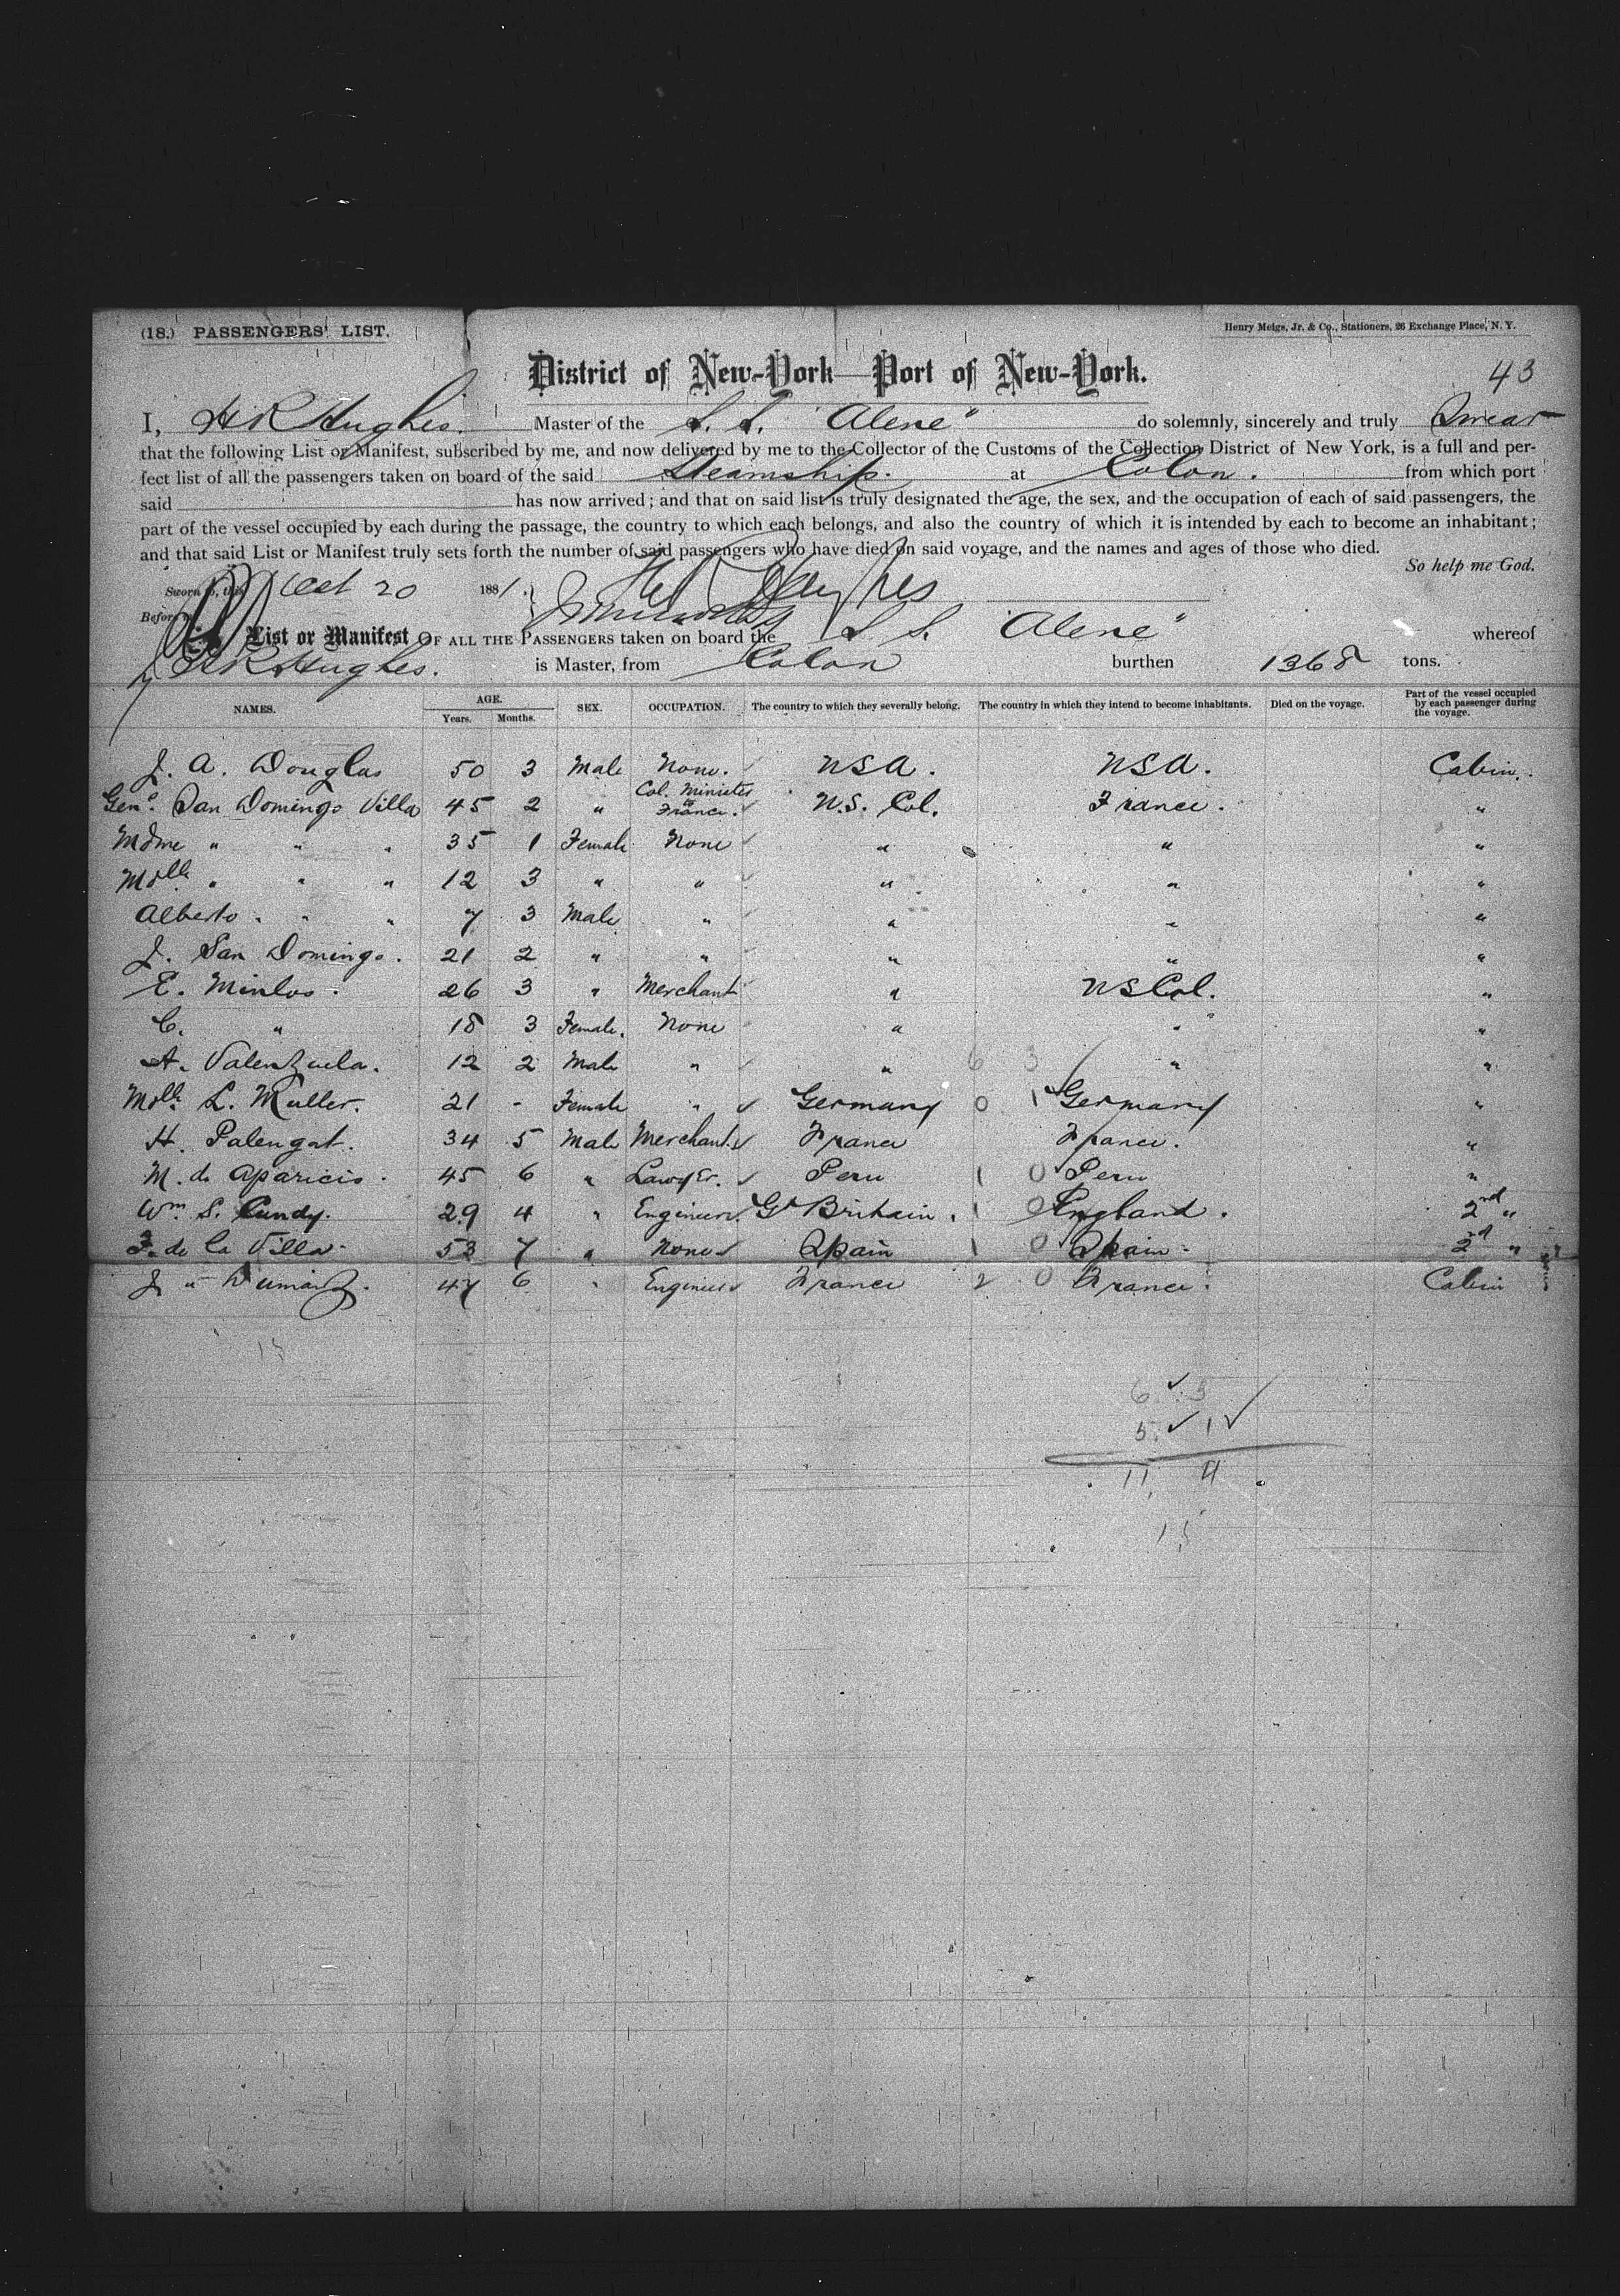 (18.) PASSENGERS' LIST.
Henry Meigs, Jr. & Co., Stationers, 26 Exchange Place, N. Y.
District of New-York—Port of New-York.
43
I, H R Hughes. Master of the S. S. "Alene" do solemnly, sincerely and truly Swear
that the following List or Manifest, subscribed by me, and now delivered by me to the Collector of the Customs of the Collection District of New York, is a full and per-
fect list of all the passengers taken on board of the said Steamship. at Colon. from which port
said has now arrived; and that on said list is truly designated the age, the sex, and the occupation of each of said passengers, the
part of the vessel occupied by each during the passage, the country to which each belongs, and also the country of which it is intended by each to become an inhabitant;
and that said List or Manifest truly sets forth the number of said passengers who have died on said voyage, and the names and ages of those who died.
So help me God.
Sworn to, this Oct 20 1881. H R Hughes
Before
List or Manifest OF ALL THE PASSENGERS taken on board the S S. "Alene" whereof
H R Hughes. is Master, from Colon burthen 1368 tons.
NAMES. AGE. Years. Months. SEX. OCCUPATION. The country to which they severally belong. The country in which they intend to become inhabitants. Died on the voyage. Part of the vessel occupied by each passenger during the voyage.
J. A. Douglas 50 3 Male None. USA. USA. Cabin.
Genl. San Domingo Villa 45 2 " Col. Minister to France. U.S. Col. France. "
Mdme " " " 35 1 Female None " " "
Mdlle " " " 12 3 " " " " "
Alberto " " " 7 3 Male " " " "
J. San Domingo. 21 2 " " " " "
E. Minlos. 26 3 " Merchant " US Col. "
C. " 18 3 Female. None " " "
A. Valenzuela. 12 2 Male " " 6 3 " "
Mdlle L. Muller. 21 - Female " Germany 0 1 Germany "
H. Palengat. 34 5 Male Merchant. France France. "
M. de Aparicio. 45 6 " Lawyer. Peru 1 0 Peru "
Wm. S. Cundy. 29 4 " Engineer. Gt Britain. 1 0 England. 2nd "
F. de la Villa 53 7 " None Spain 1 0 Spain. 2nd "
J " Dumainz. 47 6 " Engineer France 2 0 France. Cabin
15
6 3
5 1
11 4
15